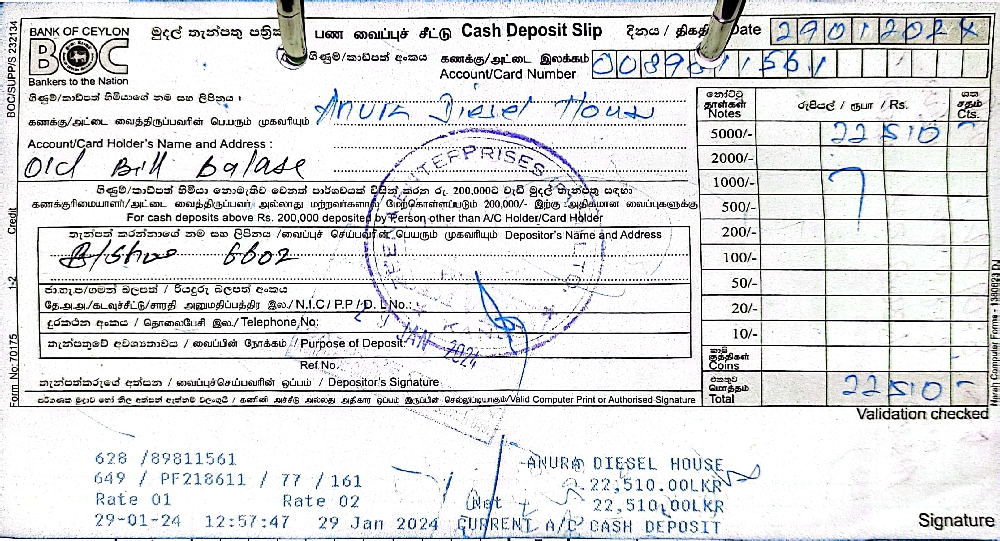 BOC/SUPP/S 232134
BANK OF CEYLON
BOC
Bankers to the Nation
මුදල් තැන්පතු පත්‍රි பண வைப்புச் சீட்டு Cash Deposit Slip
දිනය / திகதி Date 29012024
ගිණුම්/කාඩ්පත් අංකය கணக்கு/அட்டை இலக்கம்
Account/Card Number 0089811561
ගිණුම්/කාඩ්පත් හිමියාගේ නම සහ ලිපිනය :
கணக்கு/அட்டை வைத்திருப்பவரின் பெயரும் முகவரியும் Anura Diesel House
Account/Card Holder's Name and Address :
Old Bill balase
ගිණුම්/කාඩ්පත් හිමියා නොමැතිව වෙනත් පාර්ශවයක් විසින් කරන රු. 200,000ට වැඩි මුදල් තැන්පතු සඳහා
கணக்குரிமையாளர்/அட்டை வைத்திருப்பவர் அல்லாது மற்றவர்களால் மேற்கொள்ளப்படும் 200,000/- இற்கு அதிகமான வைப்புகளுக்கு
For cash deposits above Rs. 200,000 deposited by Person other than A/C Holder/Card Holder
තැන්පත් කරන්නාගේ නම සහ ලිපිනය /வைப்புச் செய்பவரின் பெயரும் முகவரியும் Depositor's Name and Address
6602
ජා.හැ.ප/ගමන් බලපත් / රියදුරු බලපත් අංකය
தே.அ.அ/கடவுச்சீட்டு/சாரதி அனுமதிப்பத்திர இல./ N.I.C / P.P / D. L No.:
දුරකථන අංකය / தொலைபேசி இல./ Telephone No:
තැන්පතුවේ අවශ්‍යතාවය / வைப்பின் நோக்கம் / Purpose of Deposit:
Ref No.
තැන්පත්කරුගේ අත්සන / வைப்புச்செய்பவரின் ஒப்பம் / Depositor's Signature
Valid Computer Print or Authorised Signature
නෝට්ටු
தாள்கள்
Notes
රුපියල් / ரூபா / Rs.
ශත
சதம்
Cts.
5000/- 22510 -
2000/-
1000/-
500/-
200/-
100/-
50/-
20/-
10/-
කාසි
குத்திகள்
Coins
එකතුව
மொத்தம்
Total 22510 -
Credit
1-2
Form No: 70175
ENTERPRISES
LTD
KANDY
29 JAN 2024
Validation checked
628 /89811561 ANURA DIESEL HOUSE
649 / PF218611 / 77 /161 22,510.00LKR
Rate 01 Rate 02 Net 22,510.00LKR
29-01-24 12:57:47 29 Jan 2024 CURRENT A/C CASH DEPOSIT
Signature